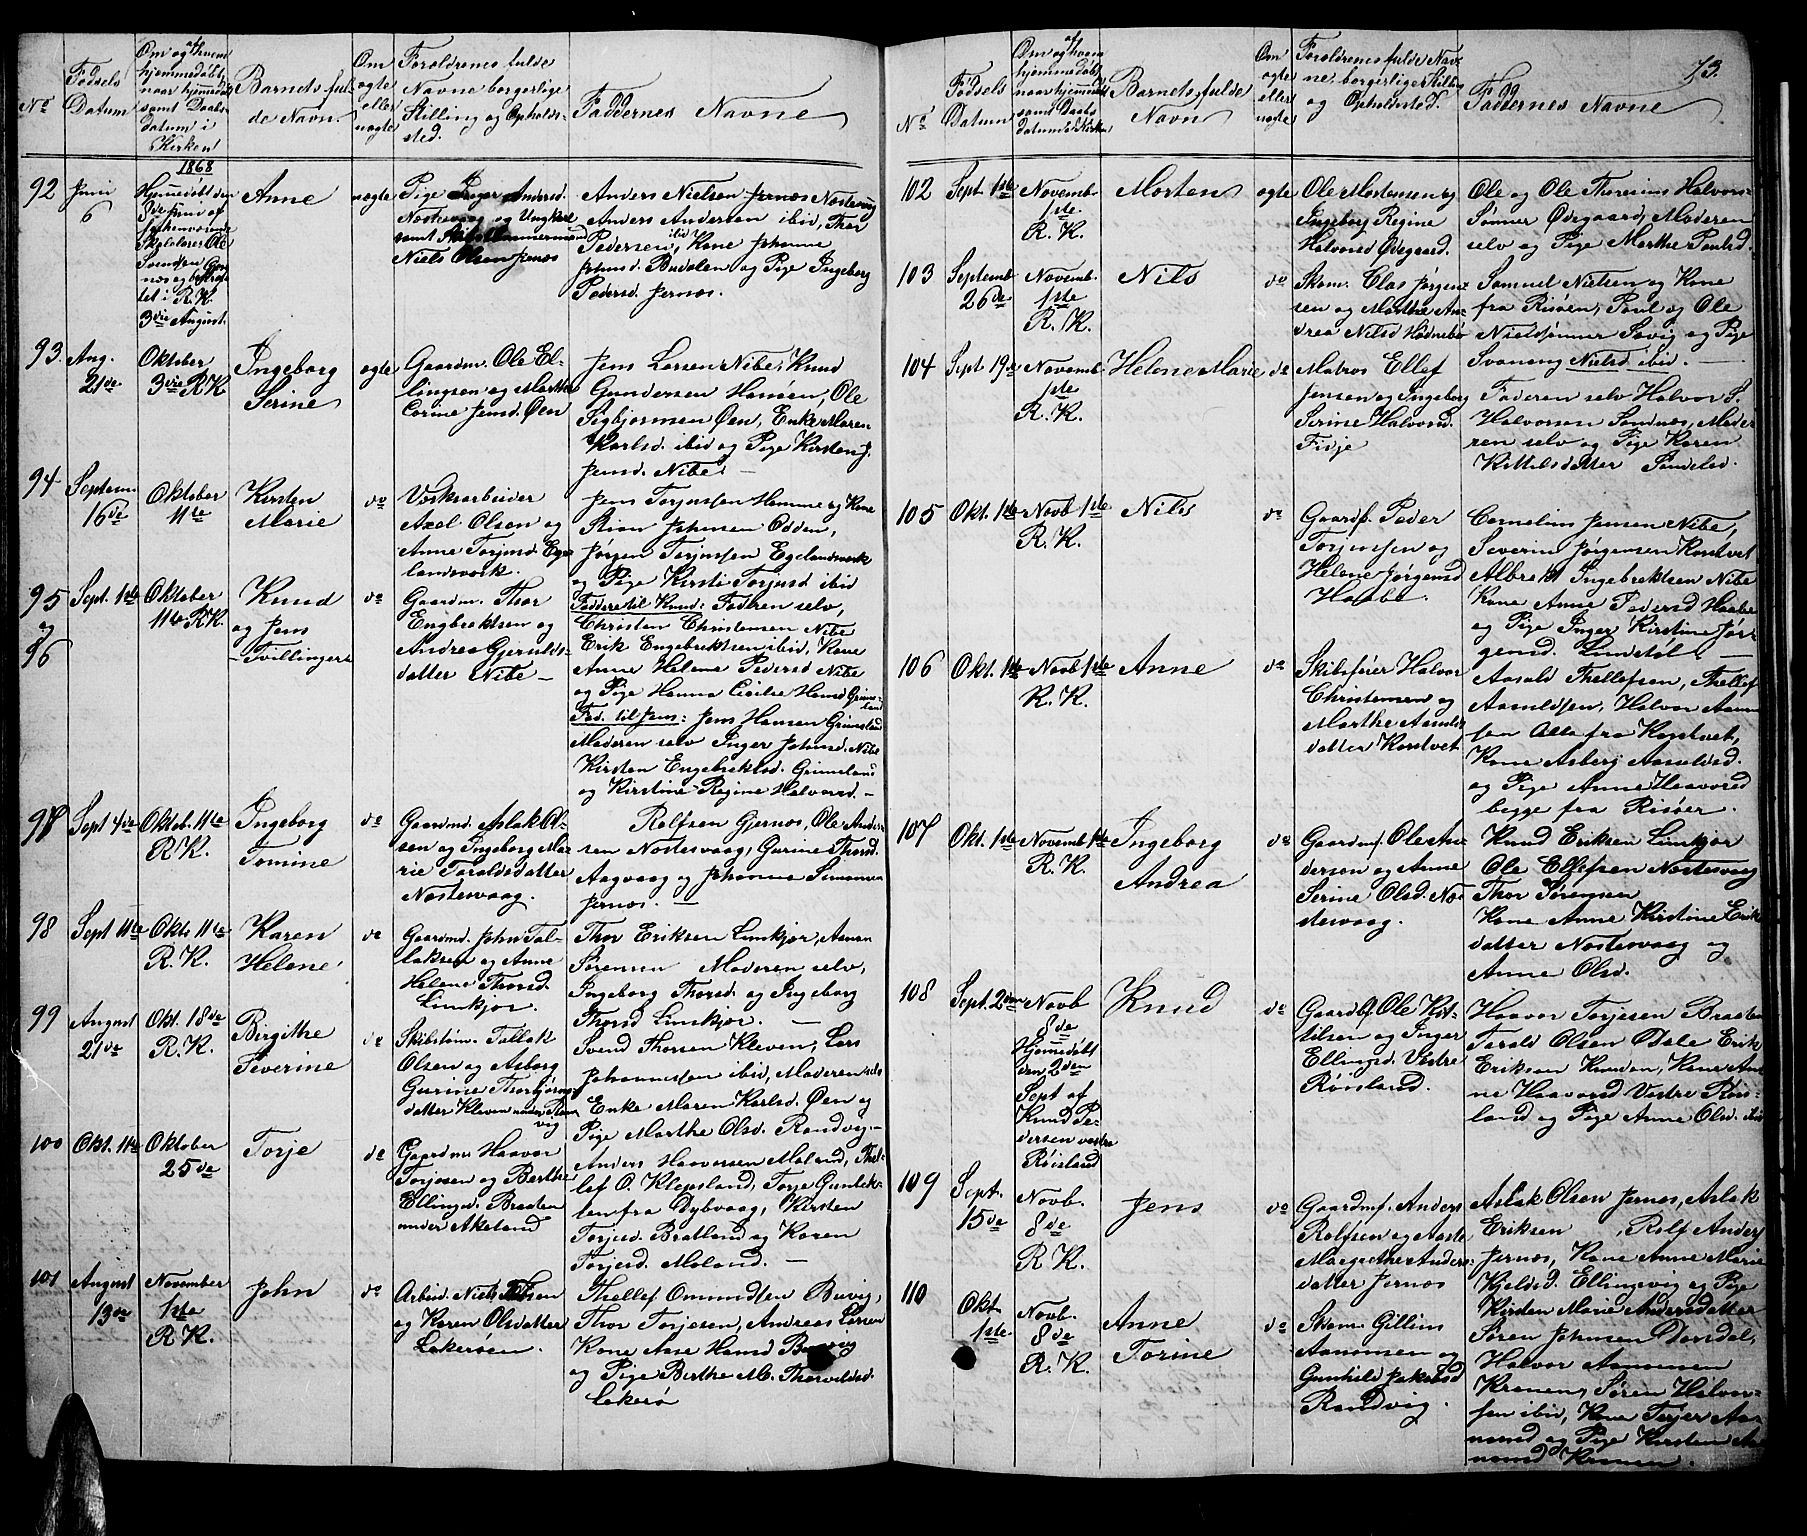 No
Fødsels
Datum
Om og af hvem
hjemmedøbt,
naar hjemmedøbt
samt Daabs
datum i
Kirken
Barnets ful-
de Navn.
Om
ægte
eller
uægte
Forældrenes fulde
Navne borgerlige
Stilling og Opholds-
sted.
Faddernes Navne
1868
92
Juni
6
Hjemmedøbt den
af
Skolelærer Ole
R.K.
3die August.
Anne
uægte
Pige Inger Andersd.
Nostevaag og Ungkarl
samt
Niels Olsen Jernæs
Anders Nielsen Jernæs Nostevaag
Anders Andersen ibid, Thor
Pedersen ibid, Kone Johanne
Johnsd. Budalen og Pige Ingeborg
Pedersd. Jernæs.
93.
Aug.
21de
Oktober
3die R.K
Ingeborg
Serine
ægte
Gaardm. Ole El-
lingsen og Marthe
Corine Jensd. Øen
Jens Larsen Nibe, Knud
Gundersen Hansen, Ole
Sigbjørnsen Øen, Enke Maren
Karlsd. ibid og Pige Kirsten J.
Jensd. Nibe. —
94
Septem.
16de
Oktober
11te
Kirsten
Marie
do
Værksarbeider
Axel Olsen og
Anne Torjusd. Ege-
landsværk.
Jens Torjussen Hamme og Kone
Stian Johnsen Odden,
Jørgen Torjussen Egelandsværk
og Pige Kirsti Torjusd ibid
95
og
96
Sept. 1ste
Oktober
11te R.K.
Knud
og Jens
- Tvillinger -
do
Gaardm. Thor
Engbrektsen og
Andrea Gjerulds-
datter Nibe —
Faddere til Knud: Faderen selv,
Christen Christensen Nibe
Erik Engebrektsen ibid, Kone
Anne Helene Pedersd Nibe
og Pige Hanna Cecilie Hansd Grimes-
land
Fad. til Jens: Jens Hansen Grimsland
Moderen selv Inger Johnsd. Nibe
Kirsten Engebrektsd. Grimeland
og Kirstine Regine Halvorsd. —
97
Sept 4de
Oktob. 11te
R.K.
Ingeborg
Tomine
do
Gaardmd. Aslak Ol-
sen og Ingeborg Ma-
rie Taraldsdatter
Nostevaag.
Rolfsen Gjernes, Ole Ander-
sen Nostevaag, Gurine Thorsd.
Aagvaag og Johanne Simonsen
Jernæs. —
98
Sept 11te
Okt. 11te
R.K.
Karen
Helene
do
Gaardmd. John Tal-
laksen og Anne
Helene Thorsd.
Limkjær.
Thor Eriksen Limkjær, Aanen
Sørensen Moderen selv,
Ingeborg Thorsd. og Ingeborg
Thorsd Limkjær. —
99
August
21de
Okt. 18de
R.K.
Birgithe
Severine
do
Skibstøm. Tallak
Olsen og Asborg
Gurine Thorbjørns-
datter Kleven under Ran-
vig
Svend Thorsen Kleven, Lars
Johannessen ibid, Moderen selv
Enke Maren Karlsd. Øen og
Pige Marthe Olsd. Randvig —
100
Okt. 11te
Oktober
25de
Torje
do
Gaardm. Haavor
Torjesen og Berthe
Ellingsd. Braaten
under Akeland
Anders Haavorsen Moland, Thel-
lef O. Klepsland, Torje Gunlek-
sen fra Dybvaag, Kirsten
Torjesd. Bratland og Karen
Torjesd. Moland. —
101
August
19de
November
1ste
R.K.
John
do
Arbmd. Niels
og Karen Olsdatter
Lakersøen.
Thellef Omundsen Buvig,
Thor Torjesen, Andreas Larsen
Kone Aase Hansd Buvig
og Pige Berthe M. Thorvaldsd.
Lakersø
No
Fødsels
Datum
Om og af hvem
hjemmedøbt
naar hjemmedøbt
samt Daabs
datum i Kirken
Barnets fulde
Navn
Om
ægte
eller
uægte
Forældrenes fulde Nav-
ne borgerlige Stilling
og Opholdssted.
Faddernes Navne
73.
102
Sept. 1ste
Novemb.
1ste
R.K.
Morten
ægte
Ole Mortensen og
Ingeborg Regine
Halvorsd Ødegaard.
Ole og Ole Thorsens Halvors-
Sønner Ødegaard, Moderen
selv og Pige Marthe Paulsd.
103
Septemb.
26de
Novemb.
1ste
R.K.
Nils
do
Skom. Clas Jørgen-
sen og Marthe An-
drea Nilsd Hødnebø
Samuel Nielsen og Kone
fra Risøen, Poul og Ole
Nielssønner Savig og Pige
Svanaug Nielsd ibid.
104
Sept 19de
Novemb.
1ste
R.K.
Helene Marie
do
Matros Ellef
Jensen og Ingeborg
Serine Halvorsd.
Fidje
Faderen selv Halvor S.
Halvorsen Sandnes, Mode-
ren selv og Pige Karen
Kittelsdatter Sandeled.
105
Okt. 1ste
Novb 1ste
R.K.
Nils
do
Gaardbf. Peder
Torjussen og
Helene Jørgensd
Haabe.
Cornelius Jensen Nibe,
Severin Jørgensen Ranstvet
Albrekt Ingebrektsen Nibe
Kone Anne Pedersd Haabe
og Pige Inger Kirstine Jør-
gensd. Lundstøl —
106
Okt. 1ste
Novb 1ste
R.K.
Anne
do
Skibsfører Halvor
Christensen og
Marthe Aasulds-
datter Ranstvet
Aasold Thellefsen, Thellef
Aasuldsen, Halvor Aanon-
sen Alle fra Ranstvet,
Kone Asberg Aasuldsd.
og Pige Anne Haavorsd
begge fra Risøer.
107
Okt. 1ste
Novemb 1ste
R.K.
Ingeborg
Andrea
do
Gaardmf. Ole An-
derson og Anne
Serine Olsd. No-
stevaag.
Knud Eriksen Limkjær
Ole Ellefsen Nostevaag
Thor Sørensen
Kone Anne Kirstine Eriks-
datter Nostevaag og
Anne Olsd.
108
Sept. 2den
Novb
8de
Hjemmedøbt
den 2den
Sept af
Knud Pe-
dersen vestre
Røisland
Knud
do
Gaardbf. Ole Kit-
tilsen og Inger
Ellingsd. Vestre
Røisland.
Haavor Torjesen Braaten
Tarald Olsen Dale Erik
Eriksen Knuden, Kone An-
ne Haavorsd Vestre Røis-
land og Pige Anne Olsd. ibid
109
Sept.
15de
Novb.
8de
R.K.
Jens
do
Gaardmf. Anders
Rolfsen og Aaste
Margrethe Anders-
datter Jernæs
Aslak Olsen Jernæs, Aslak
Eriksen , Rolf Anders
Jernæs, Kone Anne Marie
Kjeldsd. Ellingsvig og Pige
Kirsten Marie Andersdatter
110
Okt.
1ste
Novb.
8de
R.K.
Anne
Torine
do
Skom. Gillius
Aanonsen og
Gunhild Jakobsd
Randvig.
Søren Johnsen Dørsdal,
Halvor Aanonsen
Kranen, Søren Halvor-
sen ibid, Kone Torjer Aa-
nonsd og Pige Kirsten Aa-
nonsd Kranen.